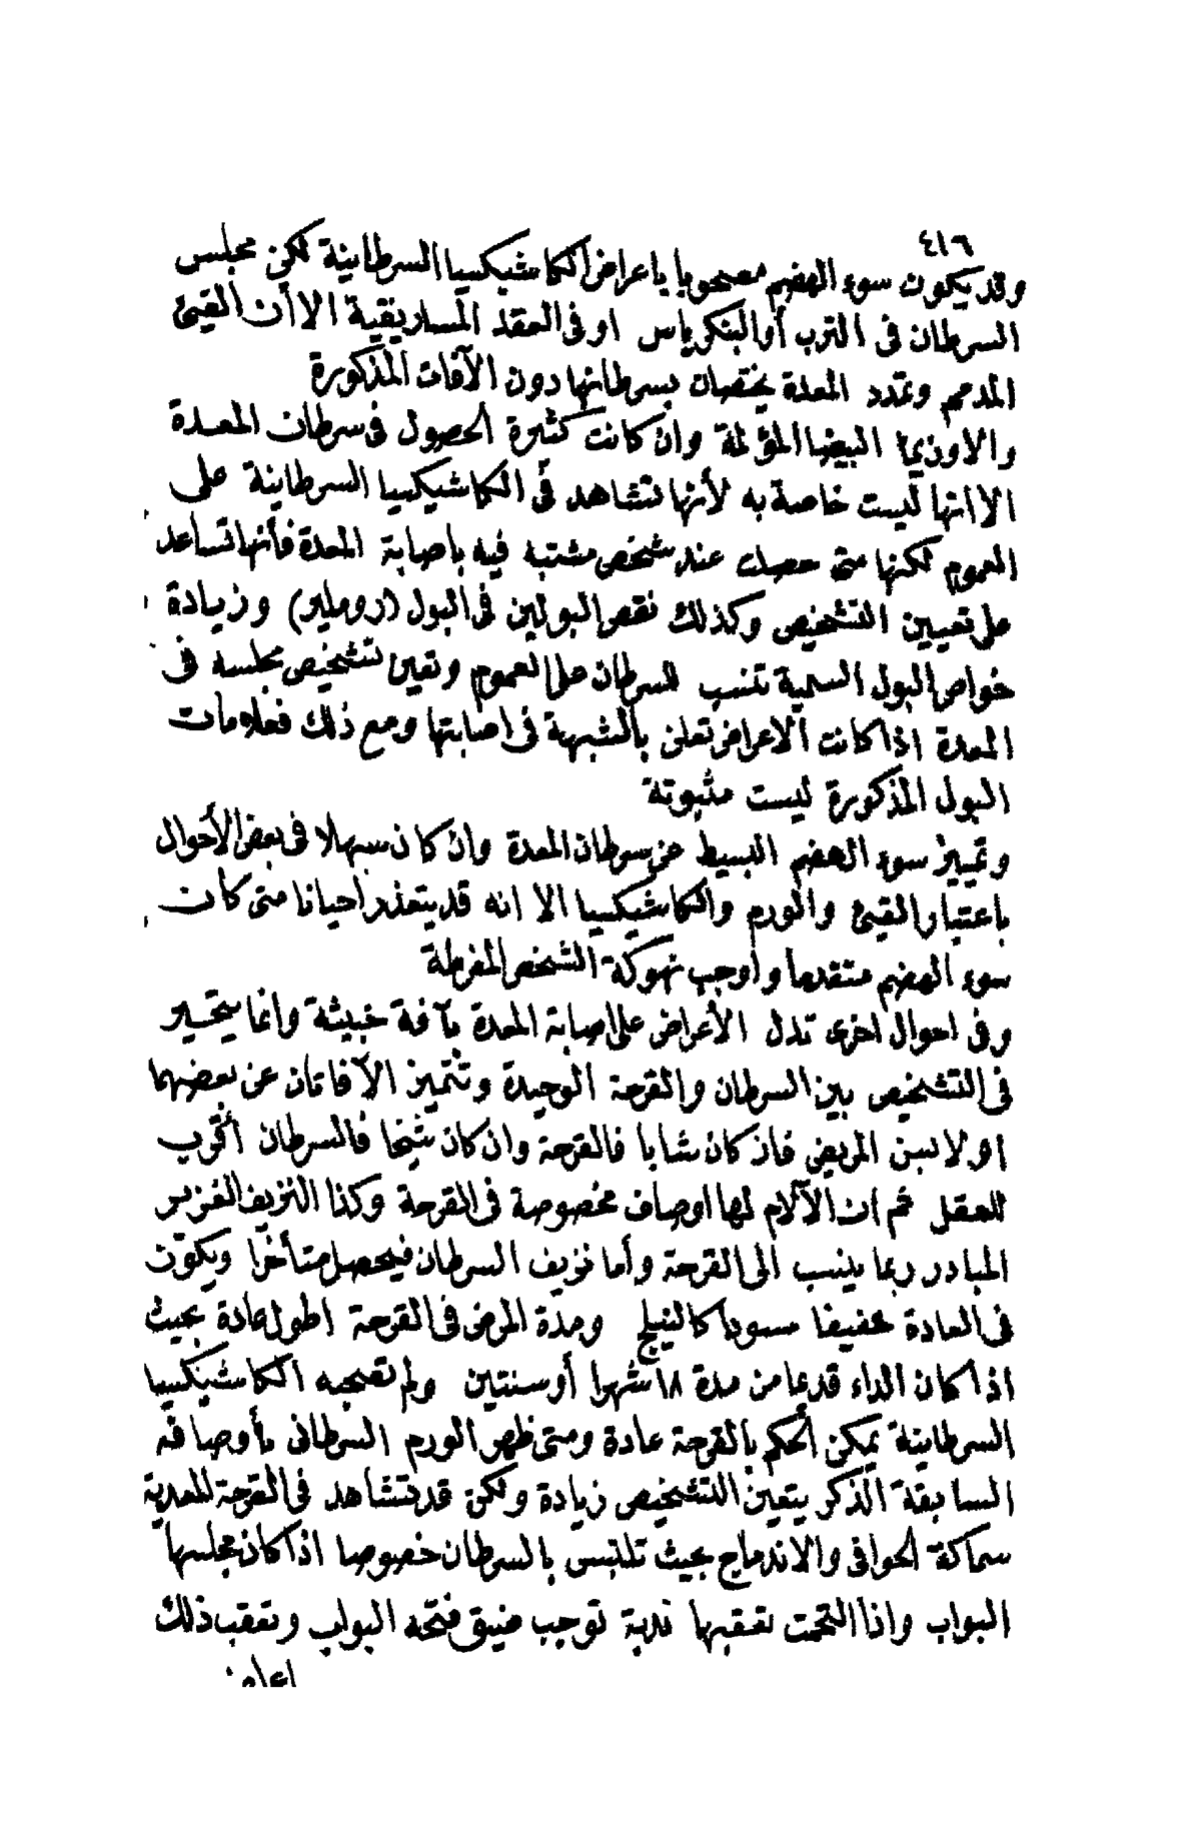 ٤١٦
وقد يكون سوء الهضم مصحوبا باعراض الكاشيكسيا السرطانية لكن مجلس
السرطان فى الترب أو البنكرياس او فى العقد المساريقية الا أن القيئ
المدمم وتمدد المعدة يختصان بسرطانها دون الآفات المذكورة
والاوذيما البيضا المؤلمة وان كانت كثيرة الحصول فى سرطان المعدة
الا انها ليست خاصة به لأنها تشاهد فى الكاشيكسيا السرطانية على
العموم لكنها متى حصلت عند شخص مشتبه فيه باصابة المعدة فأنها تساعد
على تعيين التشخيص وكذلك نقص البولين فى البول (روملير) وزيادة
خواص البول السمية تنسب للسرطان على العموم وتعين تشخيص مجلسه فى
المعدة اذا كانت الاعراض تعلن بالشبهة فى اصابتها ومع ذلك فعلامات
البول المذكورة ليست مثبوتة
وتمييز سوء الهضم البسيط عن سرطان المعدة وان كان سهلا فى بعض الأحوال
باعتبار القيئ والورم والكاشيكسيا الا انه قد يتعذر احيانا متى كان
سوء الهضم متقدما وأوجب نهوكة الشخص المفرطة
وفى احوال اخرى تدل الأعراض على اصابة المعدة بآفة خبيثة وانما يتحير
فى التشخيص بين السرطان والقرحة الوحيدة وتتميز الآفاتان عن بعضهما
اولا بسن المريض فان كان شابا فالقرحة وان كان شيخا فالسرطان أقرب
للعقل ثم ان الآلام لها اوصاف مخصوصة فى القرحة وكذا النزيف الغزير
المبادر ربما ينسب الى القرحة وأما نزيف السرطان فيحصل متأخرا ويكون
فى العادة خفيفا مسودا كالنيلج ومدة المرض فى القرحة اطول عادة بحيث
اذا كان الداء قدعا من مدة ١٨ شهرا أو سنتين ولم تصحبه الكاشيكسيا
السرطانية يمكن الحكم بالقرحة عادة ومتى ظهر الورم السرطانى بأوصافه
السابقة الذكر يتعين التشخيص زيادة ولكن قد تشاهد فى القرحة المعدية
سماكة الحوافى والاندماج بحيث تلتبس بالسرطان خصوصا اذا كان مجلسها
البواب واذا التحمت تعقبها ندبة توجب ضيق فتحه البواب وتعقب ذلك